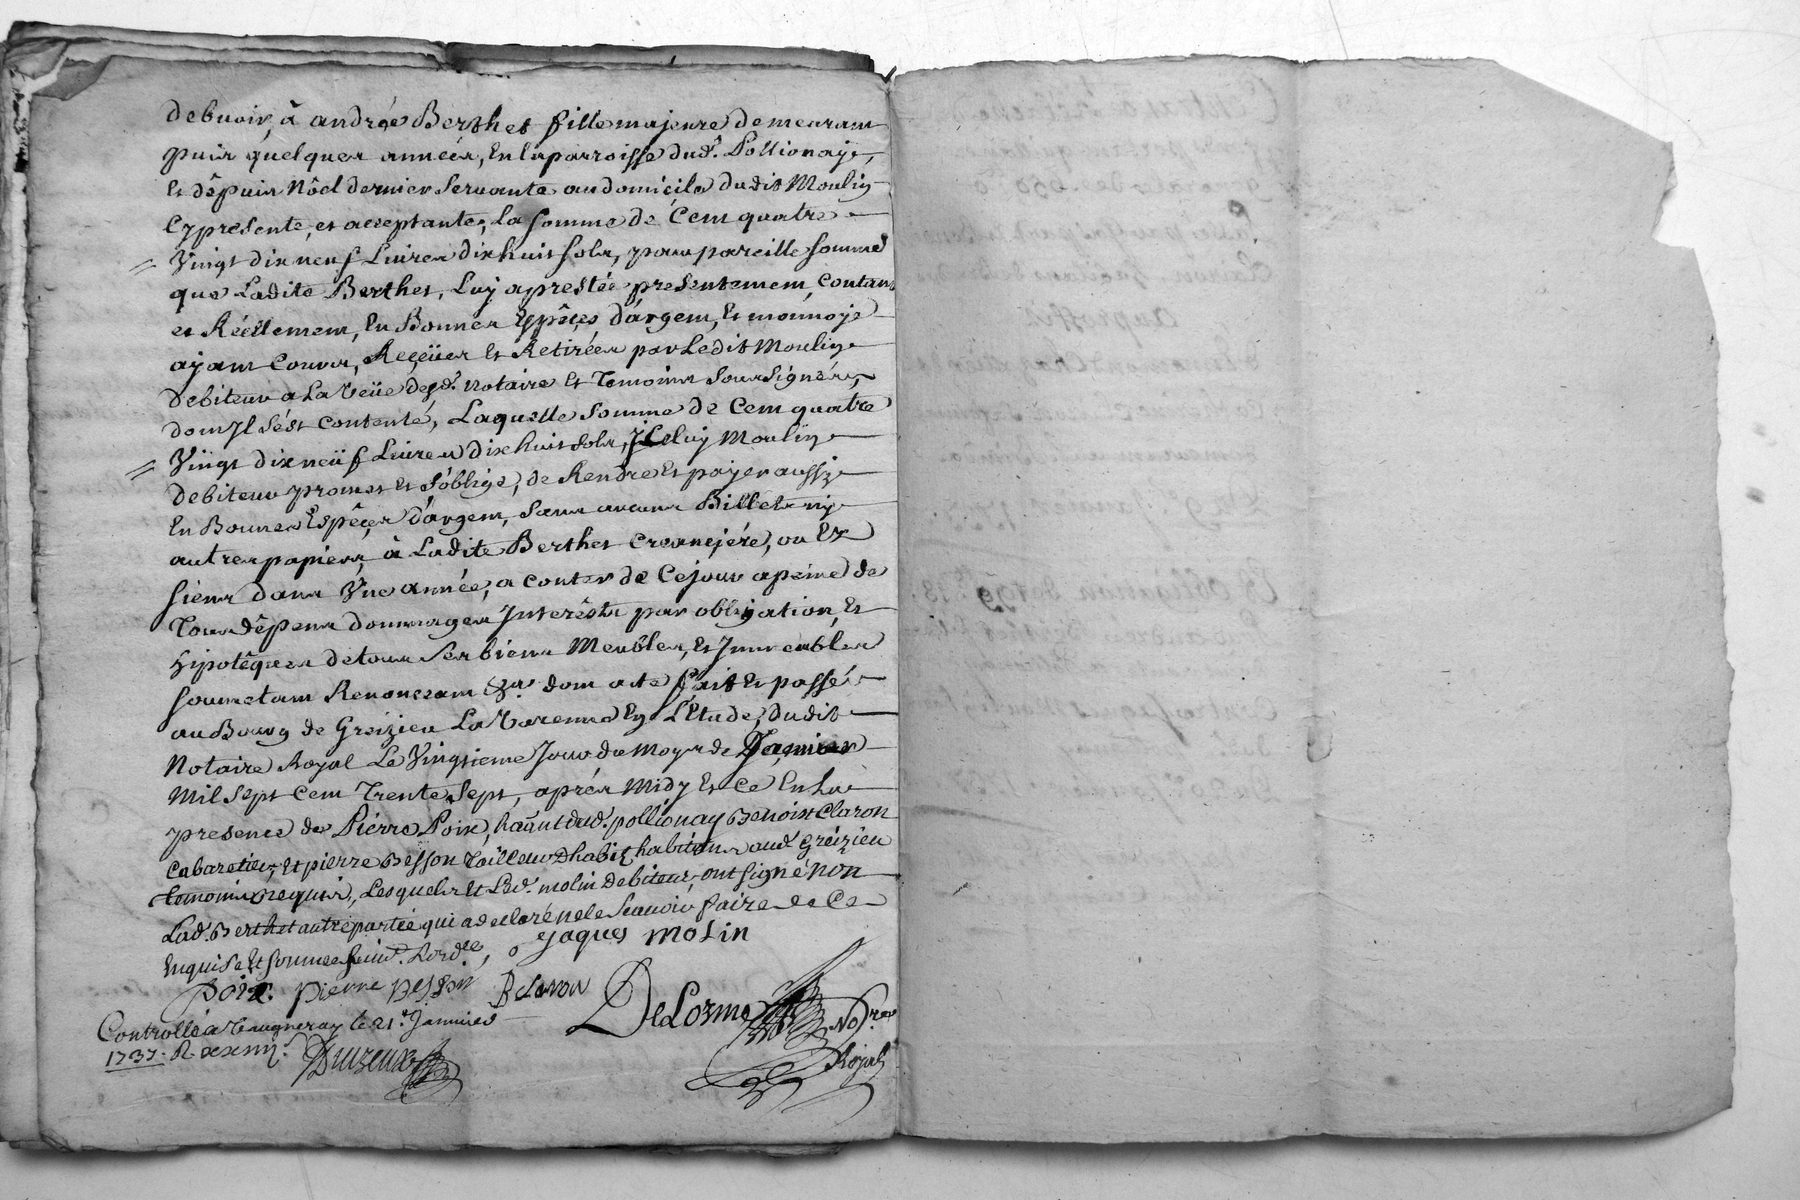 debuoir, à andrée Berthet fille majeure demeurant
puis quelques années, En la parroisse dud.t Pollionaÿ,
Et dêpuis Nöel dernier Servante au domicile dudit Moulin
Cy présente, et acceptante, La somme de Cent quatre
Vingt dix neuf Livres dix huit sols, pour pareille somme
que Ladite Berthet, Luÿ a prestée presentement, Contant
et Réellement, En Bonnes Espêces d'argent, Et monnoÿe
aÿant Cours, Reçeües Et Retirées par Ledit Moulin
debiteur a La Veüe desd.t Notaire Et Temoins Sousignés,
dont Jl S'ést Contenté, Laquelle Somme de Cent quatre
Vingt dix neüf Livres dix huit sols, Jceluÿ Moulin
debiteur promet Et S'oblige, de Rendre Et païer aussÿ
En Bonnes Espêçes d'argent, Sans aucuns Billets nÿ
autres papiers, à Ladite Berthet Creancjére, ou Ez
siens dans Vne année, a Conter de Cejour a peine de
Tous dêpens dommages Jnterêsts par obligation, Et
hipotêques de tous Ses biens Meubles, Et Jmmeubles
soumetant Renonceant &.a dont acte fait Et passé
au Bourg de Greizieu La Varenne En L'Etude, dudit
Notaire Royal Le Vingtieme Jour du Moys de Janvier
Mil Sept Cent Trente Sept, aprés Midy Et Ce En La
presence de Piérre Poix, ha͠ant dud.t pollionay Benoist Claron
Cabaretier, Et pierre Besson Tailleur d'habit habitans aud.t Greizieu
temoins requis, Lesquels Et Led.t molin debiteur, ont signé Non
Lad.e Berthet autre partie qui a declaré ne le Scavoir faire de Ce
Enquise Et sommée suiv.t Lord.ce,
Jaques molin
Poix. pierre Besson B claron
DeLorme No.re
Royal
Controllé a Vaugneray le 21.e Janvier
1737. R.